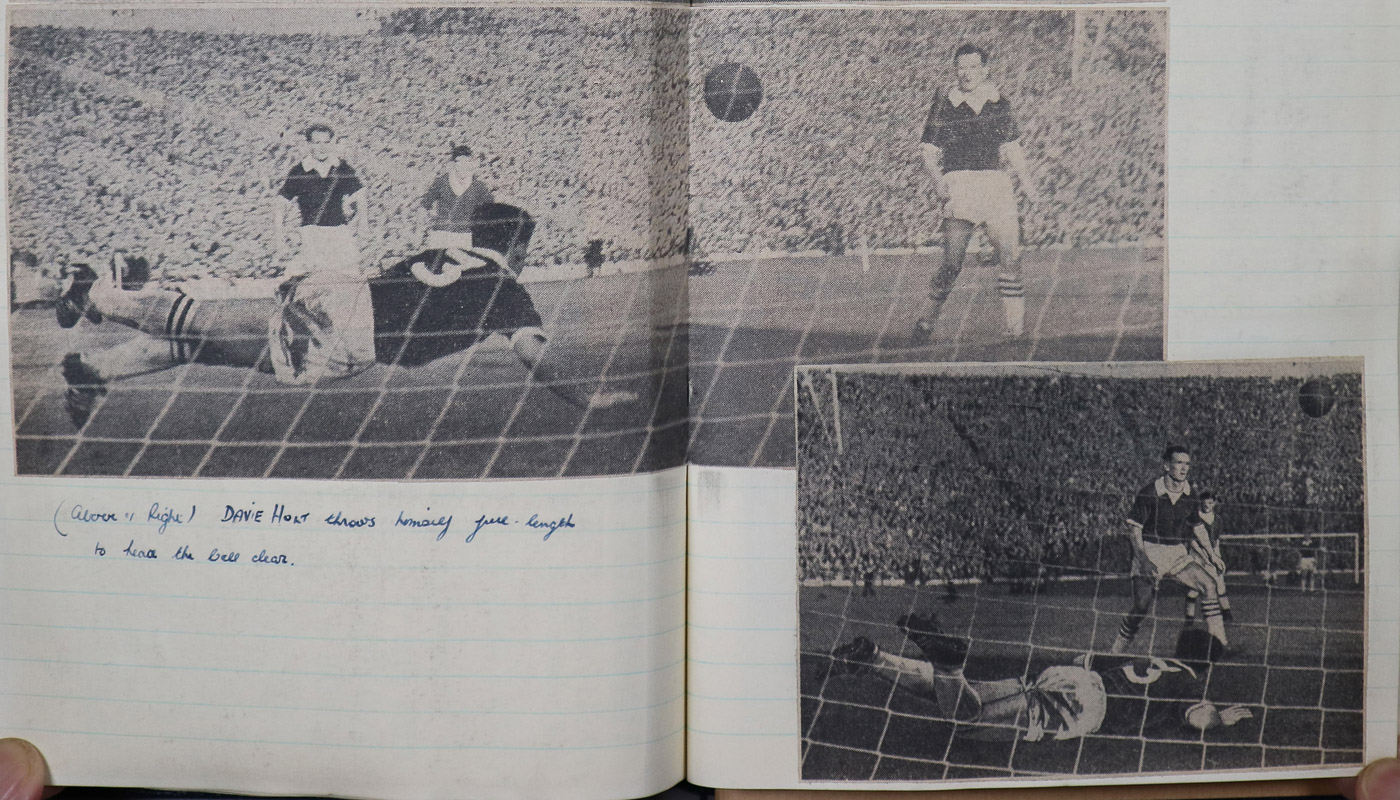 (Above & Right) DAVIE HOLT throws himself full-length
to head the ball clear.
3
3